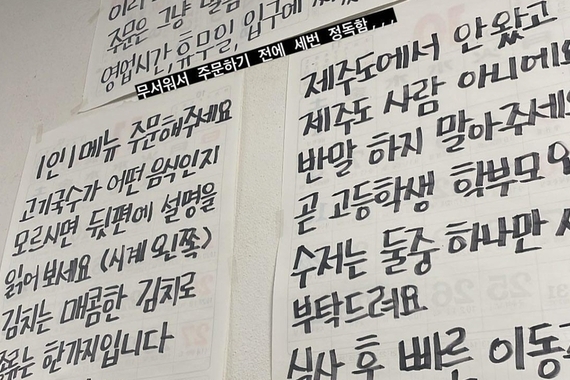 주문은 그냥
영업시간, 휴무일, 입구에
무서워서 주문하기 전에 세번 정독함...
1인 1메뉴 주문해주세요
고기국수가 어떤 음식인지
모르시면 뒷편에 설명을
읽어보세요 (시계 왼쪽)
김치는 매콤한 김치로
한가지입니다
제주도에서 안 왔고
제주도 사람 아니에요
반말 하지 말아주세요
곧 고등학생 학부모
수저는 둘중 하나만
부탁드려요
식사 후 빠른 이동